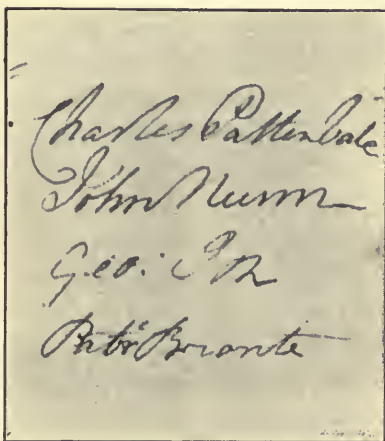 Charles Pattenbale
John Nunn
Geo:
Patk Bronte